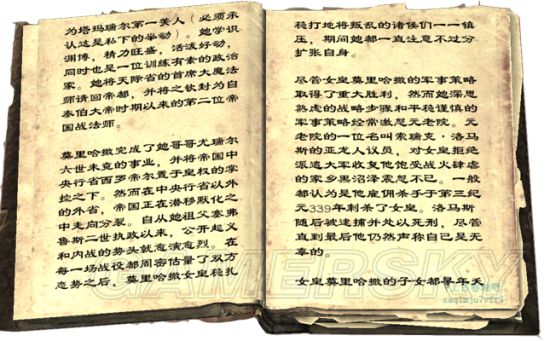 为塔玛瑞尔第一美人（必须承
认这是私下的举动）。她学识
渊博，精力旺盛，活泼好动，
同时也是一位训练有素的政治
家。她将天际省的首席大魔法
师请回帝都，并将之钦封为自
泰伯大帝时期以来的第二位帝
国战法师。
莫里哈撒完成了她哥哥尤瑞尔
六世未竟的事业，并将帝国中
央行省西罗帝尔置于皇权的掌
控之下。然而在中央行省以外
的外省，帝国正在潜移默化之
中走向分裂。自从她祖父塞弗
鲁斯二世执政以来，公开起义
和内战的势头就愈演愈烈。在
每一场战役都周密估量了双方
态势之后，莫里哈撒女皇稳扎
稳打地将叛乱的诸侯们一一镇
压，期间她都一直注意不过分
扩张自身。
尽管女皇莫里哈撒的军事策略
取得了重大胜利，然而她深思
熟虑的战略步骤和平稳谨慎的
军事策略经常激怒元老院。元
老院的一位名叫索瑞克·洛马
斯的亚龙人议员，对女皇拒绝
派遣大军收复他饱受战火肆虐
的家乡黑沼泽震怒不已。一般
都认为是他雇佣杀手于第三纪
元339年刺杀了女皇。洛马斯
随后被逮捕并处以死刑，尽管
直到最后他仍然声称自己是无
辜的。
女皇莫里哈撒的子女都是年夭
GAMERSKY